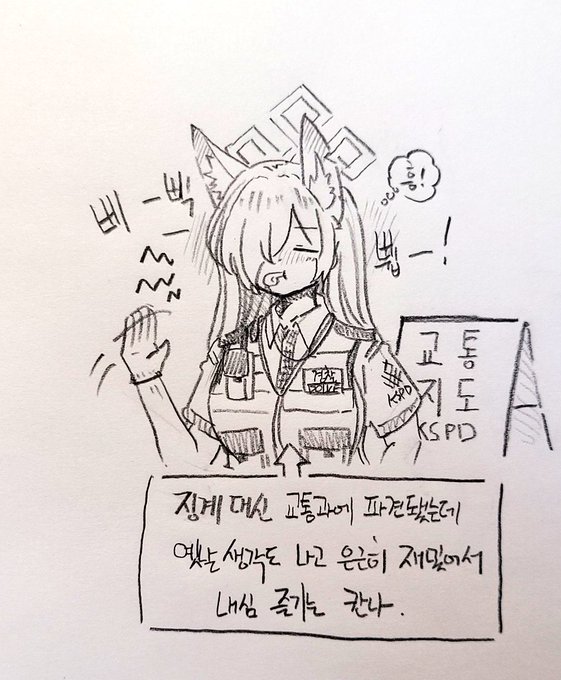 베ー삑ー
흥!
삡ー!
경찰
POLICE
KSPD
교통
지도
KSPD
징계 대신 교통과에 파견됐는데
옛날 생각도 나고 은근히 재밌어서
내심 즐기는 칸나.